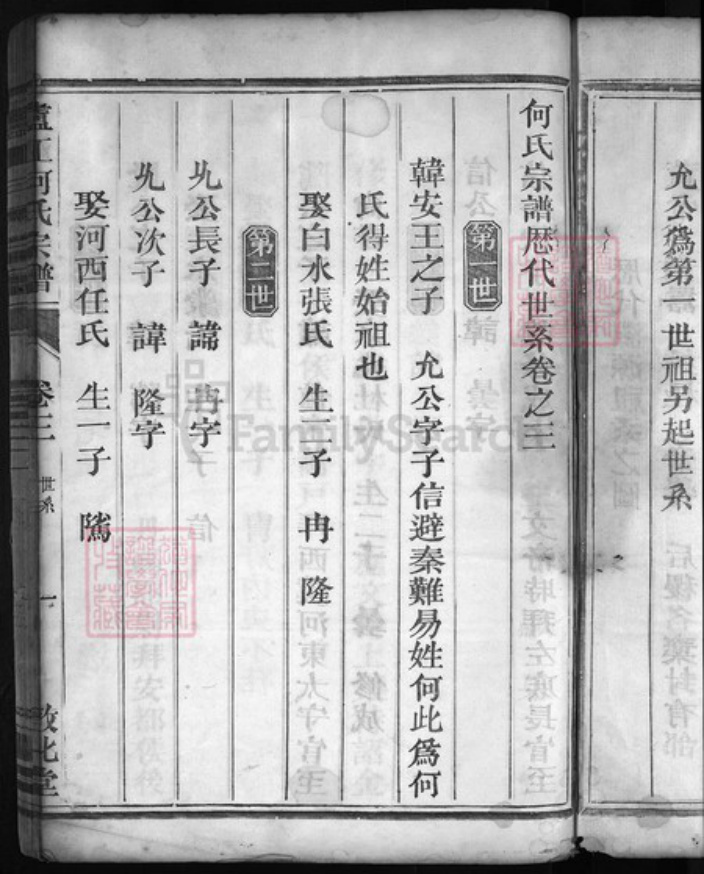 允公為第一世祖另起世系
何氏宗譜歷代世系卷之三
第一世
韓安王之子　允公字子信避秦難易姓何此為何
氏得姓始祖也
娶白水張氏　生二子　冉　隆
第二世
允公長子　諱　冉字
允公次子　諱　隆字
娶河西任氏　生一子　隲
廬江何氏宗譜
卷三
世系
一
FamilySearch